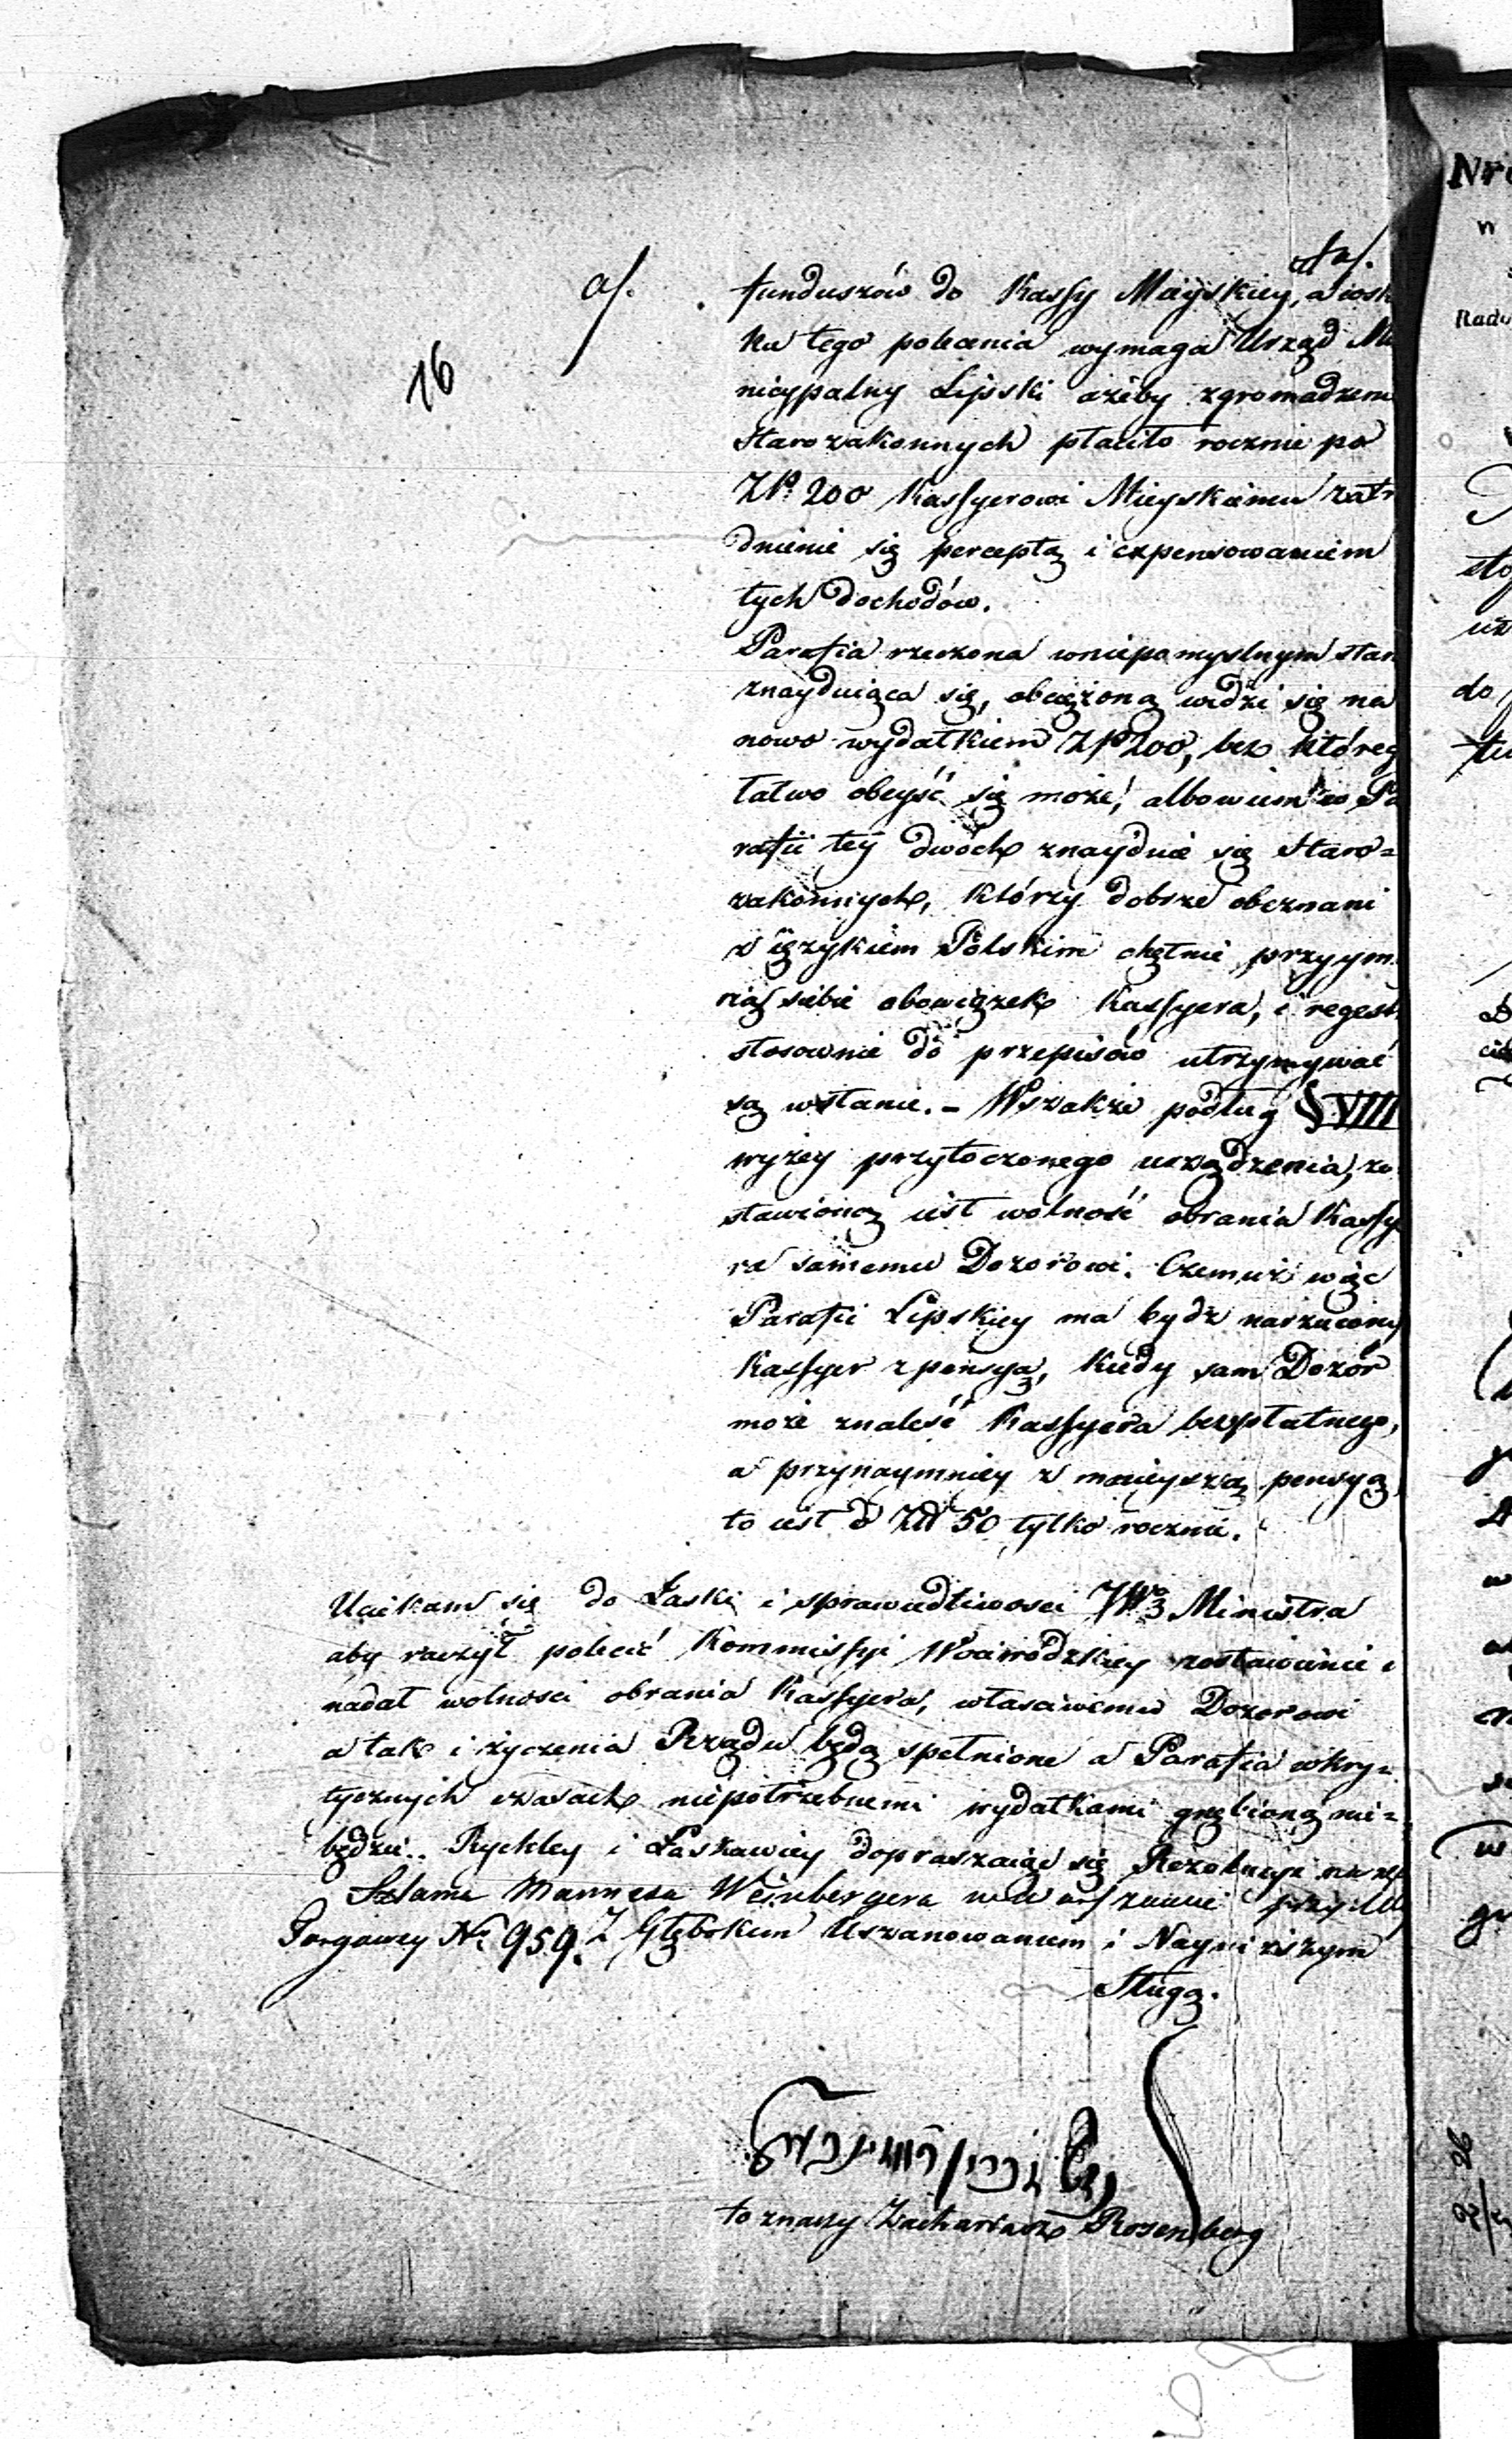 a/.
16
a/.
funduszów do Kassy Mieyskiey, a wsk
ku tego polecenia wymaga Urząd Mu
nicypalny Lipski ażeby zgromadzeni
Starozakonnych płaciło rocznie po
ZłP. 200 Kassyerowi Mieyskiemu zatr
dnienie się perceptą i expensowaniem
tych dochodów.
Parafia rzeczona w niepomyslnym stan
znayduiąca się, obciążoną widzi się na
nowo wydatkiem ZłP 200, bez któreg
łatwo obeyść się może, albowiem w Pa
rafii tey dwóch znayduie się Staro=
zakonnych, którzy dobrze obeznani
z ięzykiem Polskim chętnie przyym
na siebie obowiązek Kassyera, i regestr
stosownie do przepisów utrzymywać
są w stanie. - Wszakże podług § VIII
wyżey przytoczonego urządzenia, zo
stawioną iest wolność obrania Kassy
ra samemu Dozorowi. Czemuż więc
Parafii Lipskiey ma bydź narzucony
Kassyer z pensyą, kiedy sam Dozór
może znaleść Kassyera bezpłatnego,
a przynaymniey z mnieyszą pensyą
to iest Zł 50 tylko rocznie.
Uciekam się do Łaski i sprawiedliwosci JW Ministra
aby raczył polecić Kommissyi Woiewódzkiey zostawienie i
nadał wolnosci obrania Kassyera, własciwemu Dozorowi
a tak i życzenia Rządu będą spełnione a Parafia w kry=
tycznych czasach niepotrzebnemi wydatkami gnębioną nie=
będzie. Rychley i Łaskawiey dopraszaiąc się Rezolucyi na ręc
Szlama Mannesa Weinbergera w Warszawie przy Ul
Targowey No. 959. Z Głębokim Uszanowaniem i Nayniższym
Sługą.
to znaczy Zachariasz Rosenberg
Nro
w
Rado
do
w